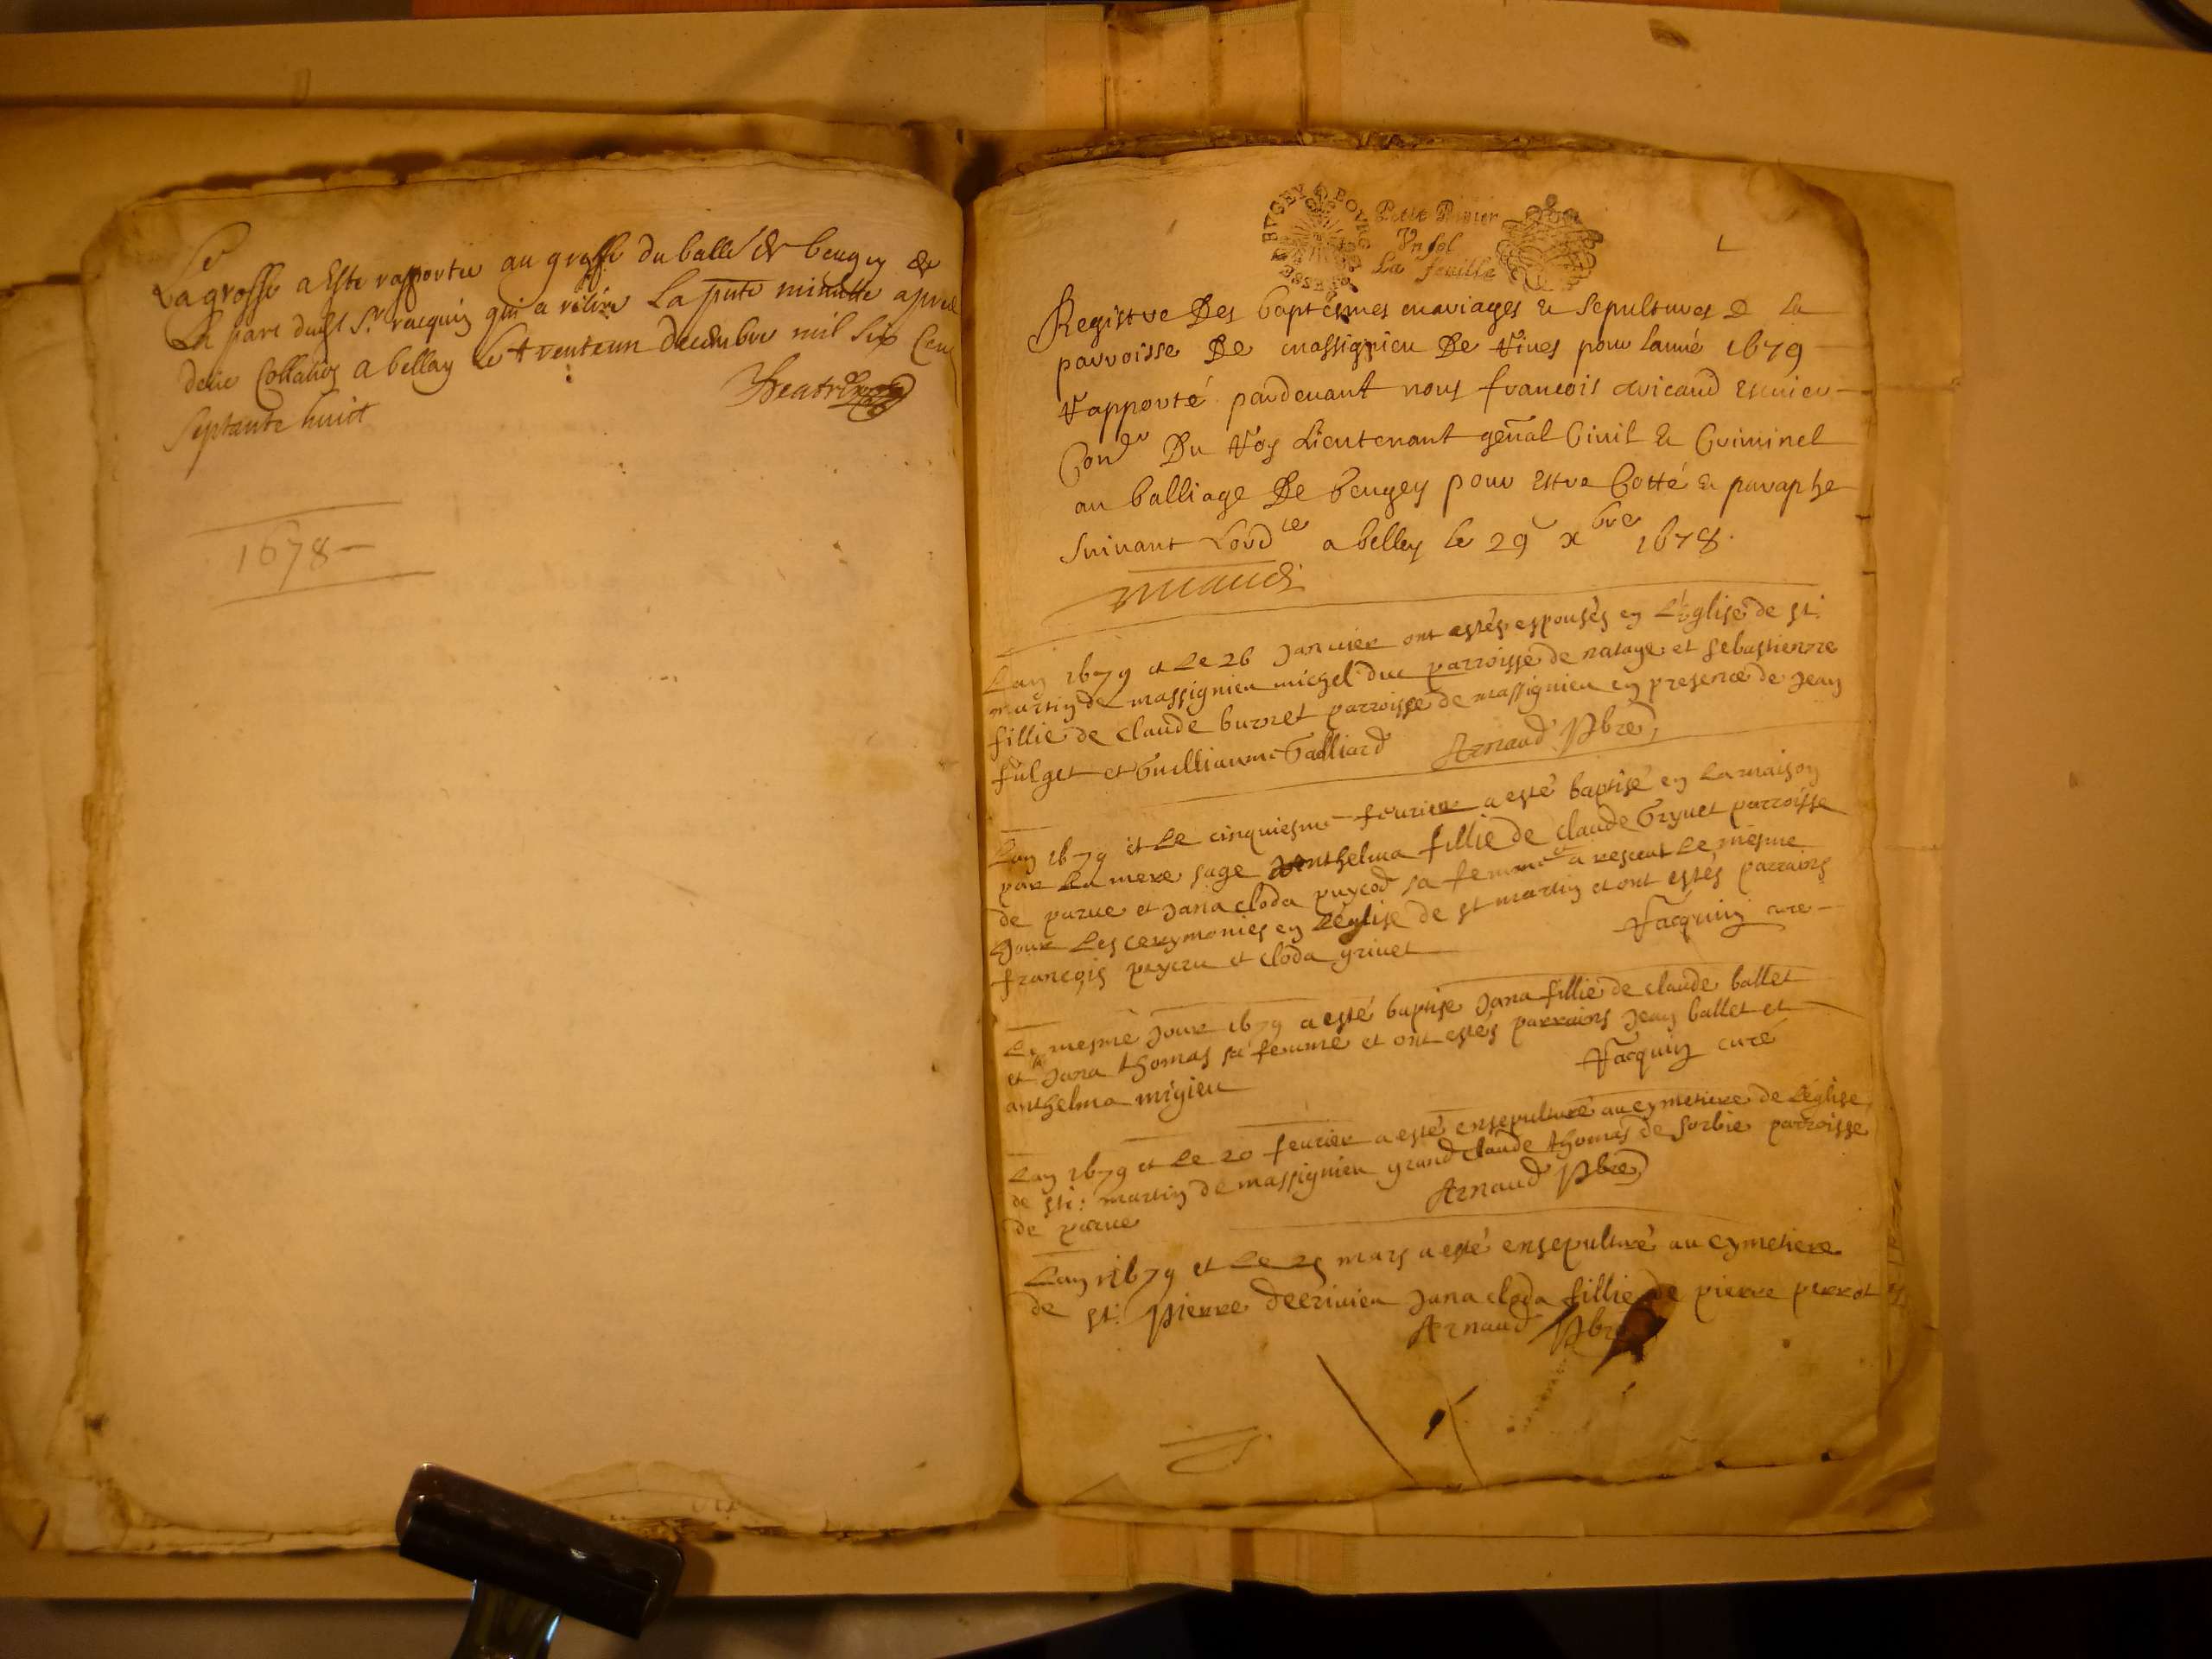 La grosse a Este rapportee au greffe du balle de beugey de
la part dudt Sr racquin qui a retiré La pnte minutte apres
deüe Collation a bellay le trente un decembre mil six Cens
septante huict
1678
BVGEY BOVRG BRESSE
Petit Papier
Vn sol
La feuille
Registre Des baptesmes mariages & sepultures D La
parroisse De massignieu De Rives pour lanné 1679
Rapporté pardevant nous francois escuier
Coner Du Roy Lieutenant genal Civil & Criminel
au balliage De beugey pour estre Cotté & paraphe
suivant Lordce a belley le 29 xbre 1678.
Lan 1679 et Le 26 Janvier ont estés espousés en L'eglise de st.
martin de massignieu michel duc parroisse de natage et sebastienne
fillie de claude burnet parroisse de massignieu en presence de Jean
fulget et Guilliaume Galliard Arnaud Pbre
Lan 1679 et Le cinquiesme feurier a esté baptisé en La maison
par La mere sage Anthelma fillie de claude Gryuet parroisse
de parue et Jana cloda puycod sa femme et a resceut Le mesme
Jour Les cerymonies en L'eglise de st martin et ont estés parrains
françois peycru et cloda griuet Jacquin cure
Le mesme Jour 1679 a esté baptise Jana fillie de claude ballet
et Jana thomas sa femme et ont estés parrains Jean ballet et
anthelma migieu Jacquin curé
Lan 1679 et Le 20 feurier a esté ensepulturé au cymetiere de L'eglise
de sti: martin de massignieu grand claude thomas de sorbie parroisse
de parue Arnaud Pbre
Lan 1679 et Le 25 mars a esté ensepulturé au cymetiere
de st. Pierre decrivieu Jana cloda fillie de pierre perrot
Arnaud Pbre